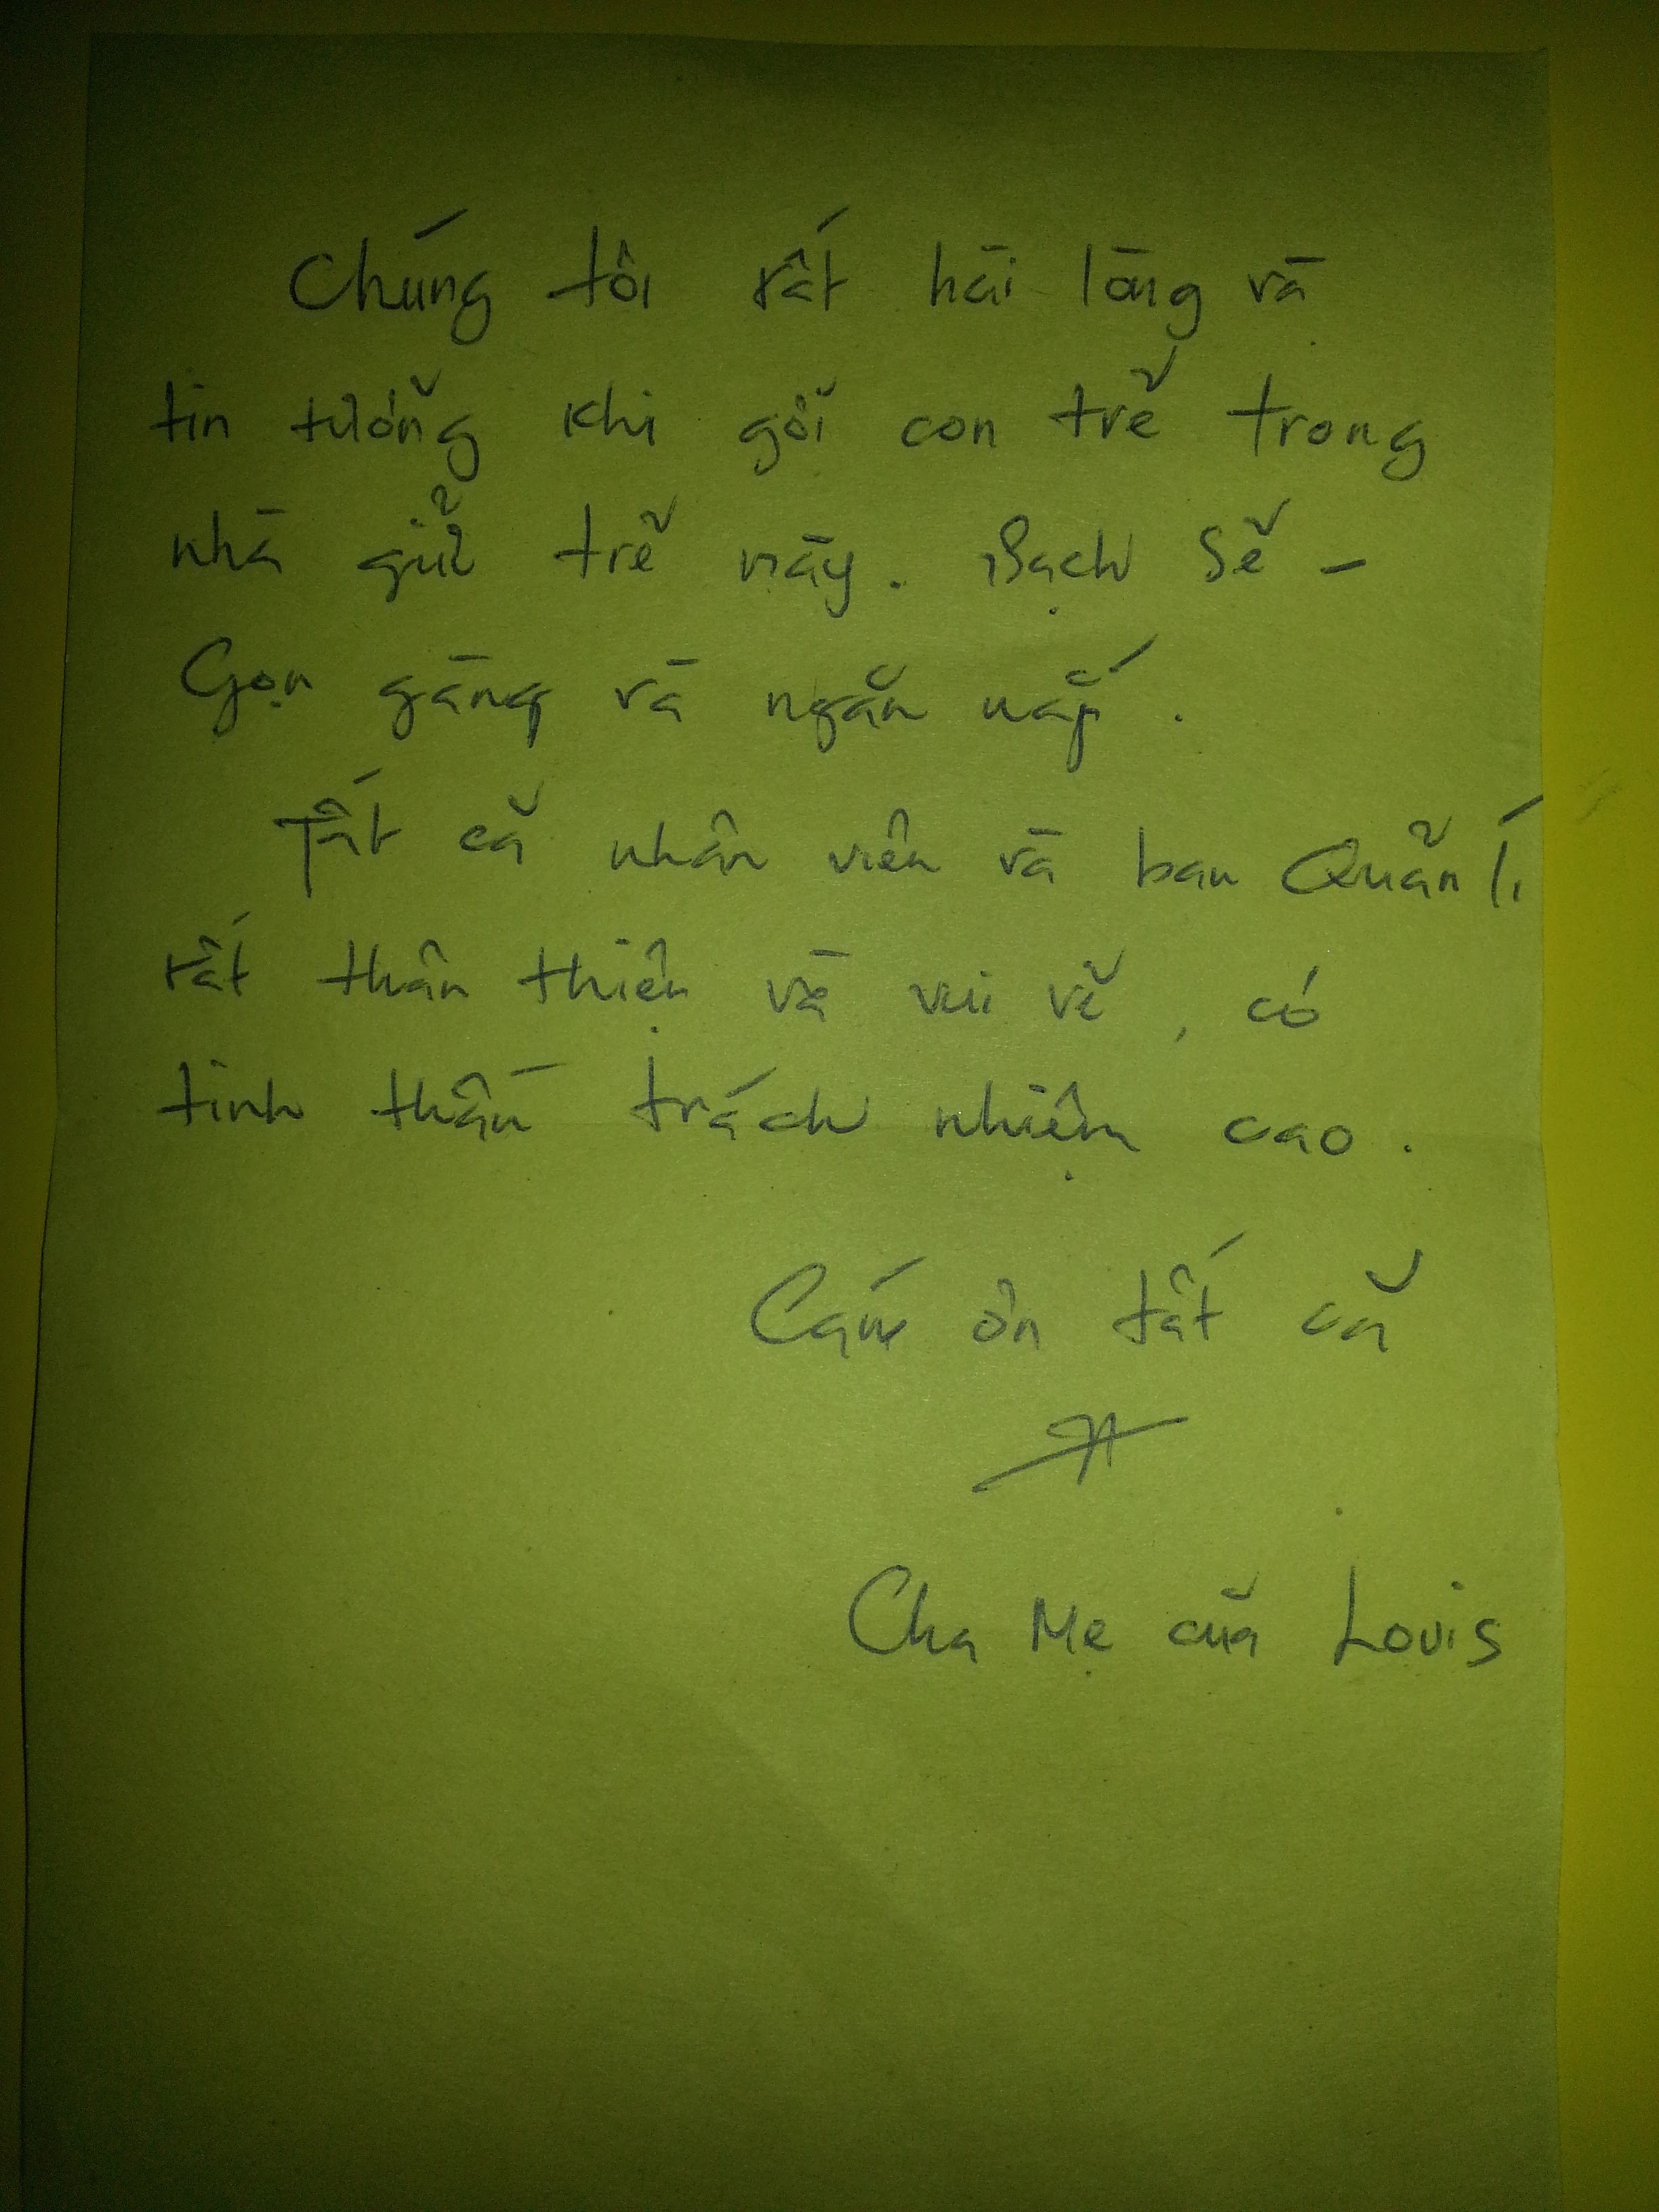 Chúng tôi rất hài lòng và
tin tưởng khi gởi con trẽ trong
nhà giữ trẽ này. Sạch Sẽ -
Gọn gàng và ngăn nắp.
Tất cã nhân viên và ban Quãn lí
rất thân thiện và vui vẽ, có
tinh thần trách nhiệm cao.
Cám ơn tất cã
Cha Mẹ cũa Louis